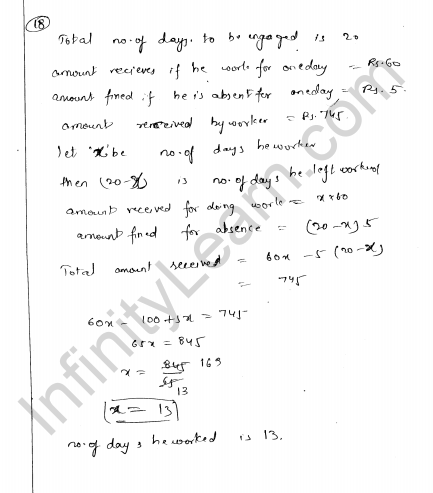 18
Total no. of days. to be engaged is 20
amount recieves if he work for oneday = Rs. 60
amount fined if he is absent for oneday = Rs. 5.
amount received by worker = Rs. 745.
let 'x' be no. of days he worker
then (20-x) is no. of days he left work of
amount received for doing work = x×60
amount fined for absence = (20-x) 5
Total amount received = 60x - 5 (20-x)
= 745
60x - 100 + 5x = 745
65x = 845
x = 845 169
65
13
x = 13
no. of days he worked is 13.
InfinityLearn.com